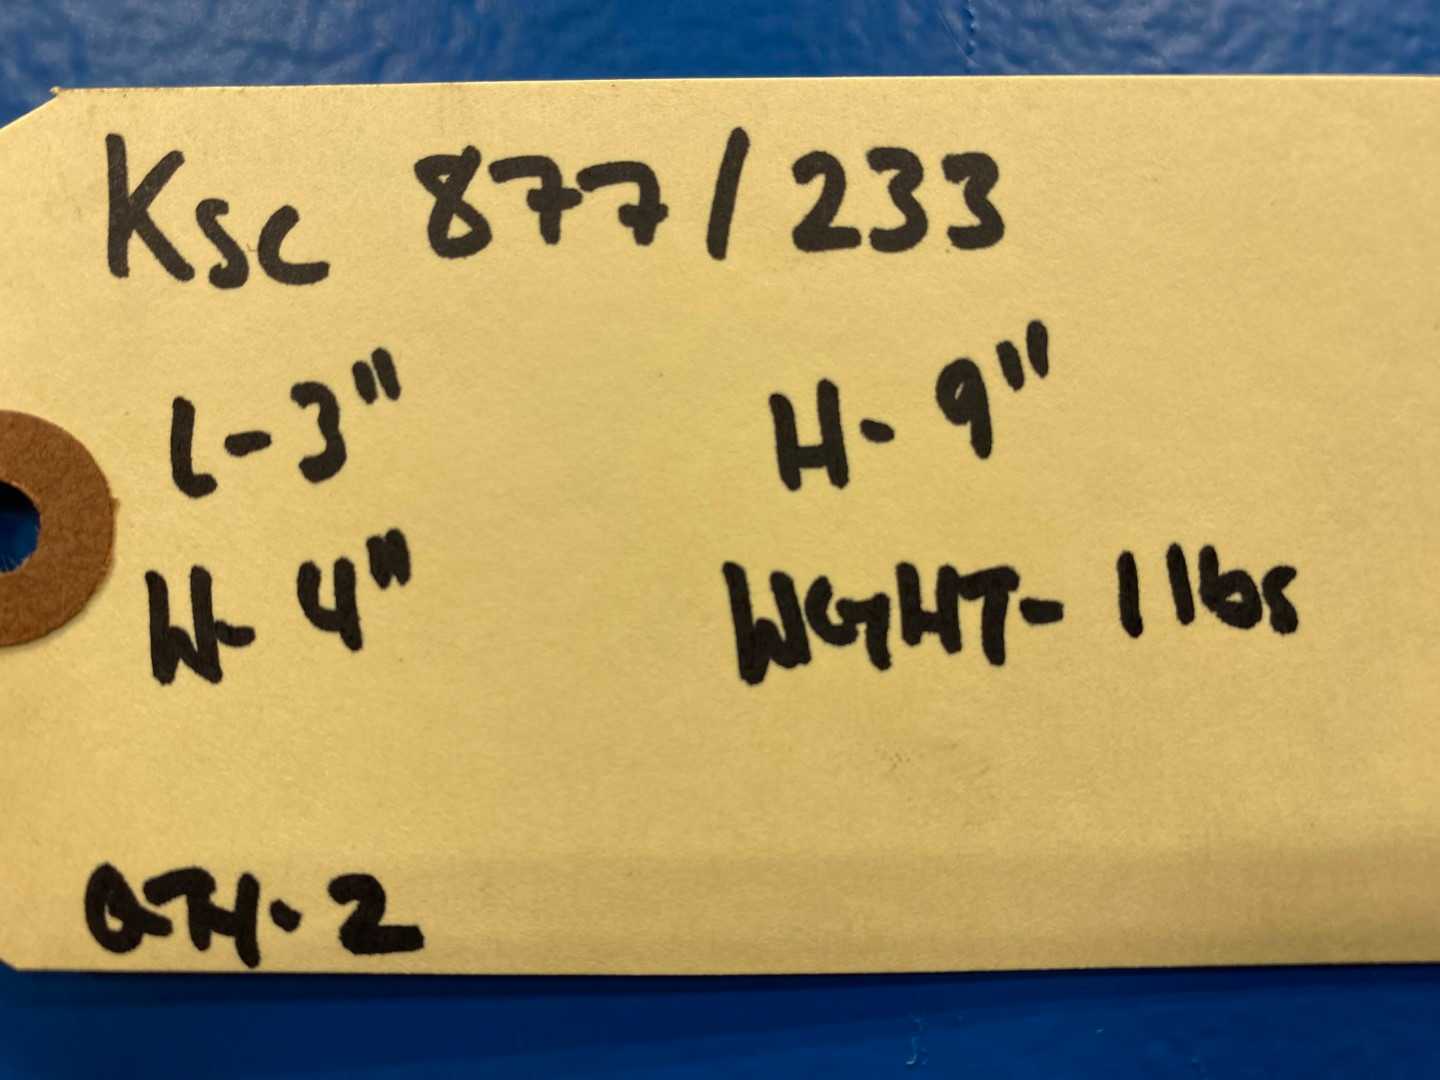 Ksc 877/233
L-3" H-9"
W-4" WGHT-1 lbs
QTY-2